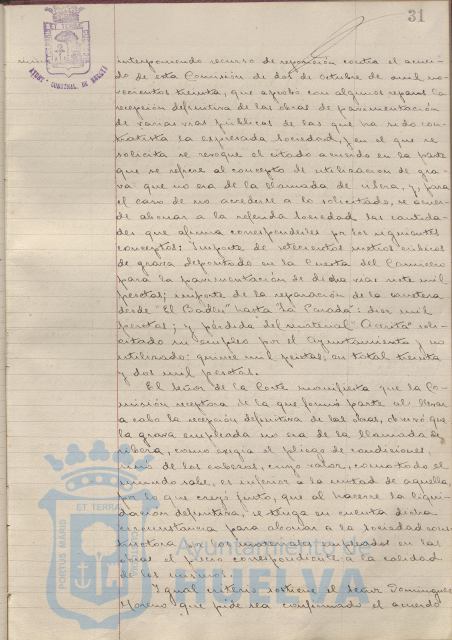 31
interponiendo recurso de reposición contra el acuer-
do de esta Comisión de dos de Octubre de mil no-
vecientos treinta, que aprobó con algunos reparos la
recepción definitiva de las obras de pavimentación
de varias vías públicas de las que ha sido con-
tratista la expresada Sociedad, y en el que se
solicita se revoque el citado acuerdo en la parte
que se refiere al concepto de utilización de gra-
va que no era de la llamada de ribera, y para
el caso de no accederse a lo solicitado, se acuer-
de abonar a la referida Sociedad las cantida-
des que afirma corresponderles por los siguientes
conceptos: Importe de setecientos metros cúbicos
de grava depositado en la Cuesta del Carnicero
para la pavimentación de dicha vía siete mil
pesetas; importe de la reparación de la carretera
desde "El Badén" hasta "La Parada": diez mil
pesetas; y pérdida del material "Acerita" soli-
citado su empleo por el Ayuntamiento y no
utilizado: quince mil pesetas, en total treinta
y dos mil pesetas.
El Señor de la Corte manifiesta que la Co-
misión receptora de la que formó parte al llevar
a cabo la recepción definitiva de las obras, observó que
la grava empleada no era de la llamada de
ribera, como exigía el pliego de condiciones,
sino de los cabezos, cuyo valor, como todo el
mundo sabe, es inferior a la mitad de aquella,
por lo que creyó justo, que al hacerse la liqui-
dación definitiva, se tenga en cuenta dicha
circunstancia para abonar a la Sociedad cons-
tructora por los materiales empleados en las
obras el precio correspondiente a la calidad
de los mismos.
Igual criterio sostiene el Señor Domínguez
Moreno que pide sea confirmado el acuerdo
ET TERRA
PORTUS MARIS
Ayuntamiento de
HUELVA